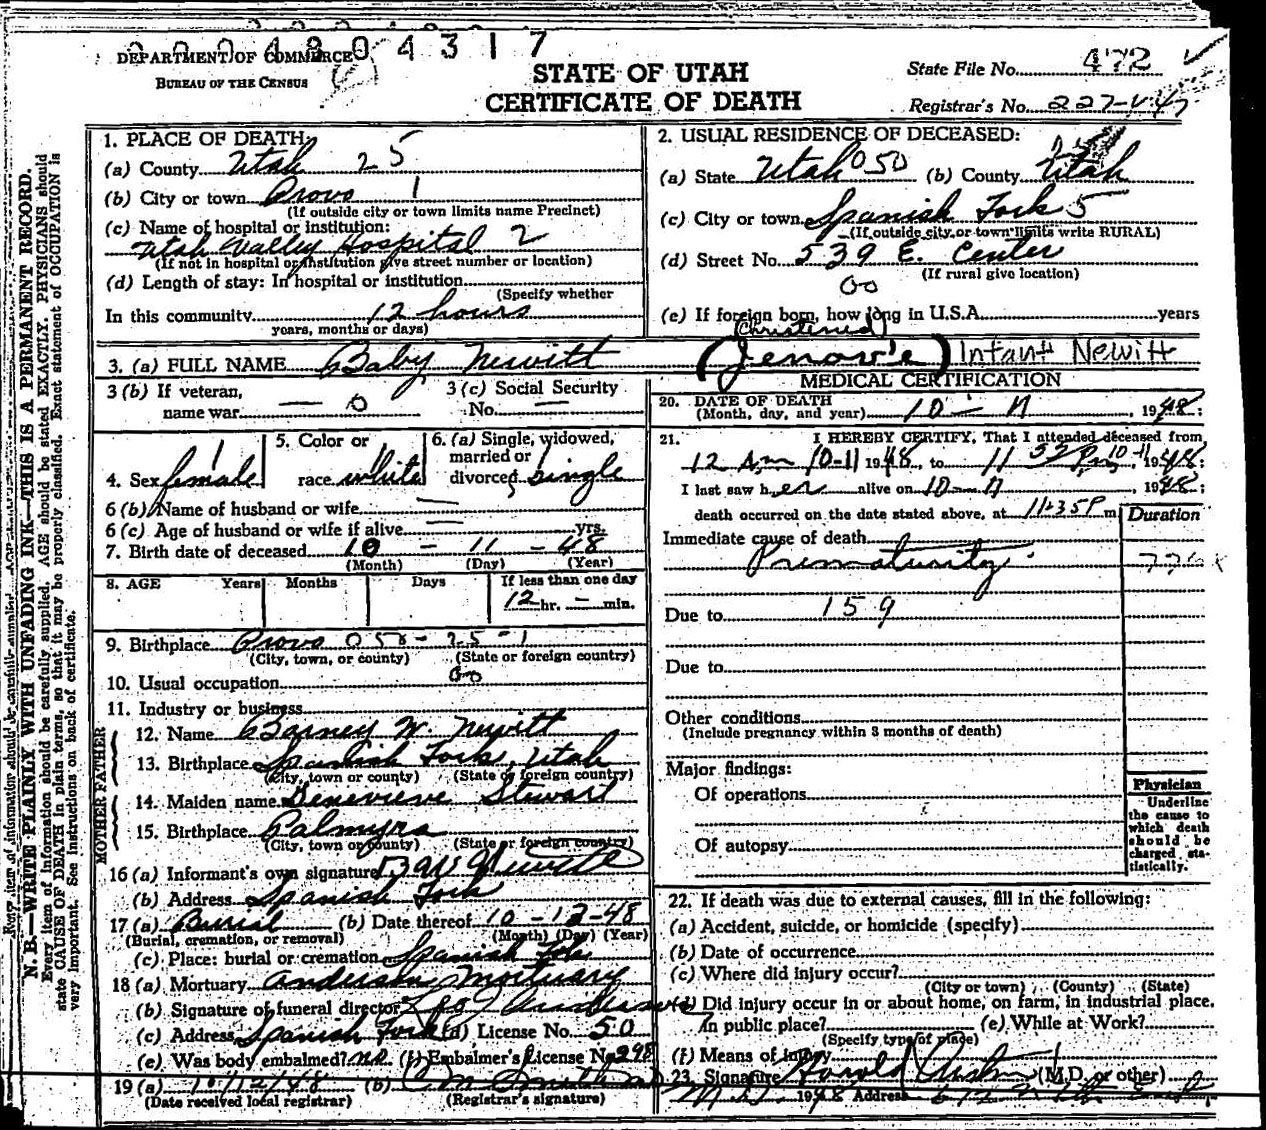 DEPARTMENT OF COMMERCE
BUREAU OF THE CENSUS
4204317
STATE OF UTAH
CERTIFICATE OF DEATH
State File No. 472
Registrar's No. 227
1. PLACE OF DEATH:
(a) County Utah 25
(b) City or town Provo 1
(If outside city or town limits name Precinct)
(c) Name of hospital or institution:
Utah Valley Hospital 2
(If not in hospital or institution give street number or location)
(d) Length of stay: In hospital or institution
(Specify whether
In this community 12 hours
years, months or days)
2. USUAL RESIDENCE OF DECEASED:
(a) State Utah 050 (b) County Utah
(c) City or town Spanish Fork 5
(If outside city or town limits write RURAL)
(d) Street No. 539 E. Center
(If rural give location)
00
(e) If foreign born, how long in U.S.A. years
3. (a) FULL NAME Baby Newitt (Christened) (Jenov'e) Infant Newitt
3 (b) If veteran, name war — 0
3 (c) Social Security No. —
4. Sex female 1
5. Color or race white 1
6. (a) Single, widowed, married or divorced single
6 (b) Name of husband or wife —
6 (c) Age of husband or wife if alive — yrs.
7. Birth date of deceased 10 - 11 - 48
(Month) (Day) (Year)
8. AGE Years Months Days If less than one day
12 hr. — min.
9. Birthplace Provo 050 - 25 - 1
(City, town, or county) (State or foreign country)
10. Usual occupation 00
11. Industry or business
FATHER
12. Name Barney W. Newitt
13. Birthplace Spanish Fork, Utah
(City, town or county) (State or foreign country)
MOTHER
14. Maiden name Genevieve Stewart
15. Birthplace Palmyra
(City, town or county) (State or foreign country)
16 (a) Informant's own signature B W Newitt
(b) Address Spanish Fork
17 (a) Burial (b) Date thereof 10-12-48
(Burial, cremation, or removal) (Month) (Day) (Year)
(c) Place: burial or cremation Spanish Fork
18 (a) Mortuary Anderson Mortuary
(b) Signature of funeral director Anderson
(c) Address Spanish Fork (d) License No. 50
(e) Was body embalmed? no (f) Embalmer's License No. 298
19 (a) 10/12/48 (b)
(Date received local registrar) (Registrar's signature)
MEDICAL CERTIFICATION
20. DATE OF DEATH
(Month, day, and year) 10 - 11, 1948:
21. I HEREBY CERTIFY, That I attended deceased from
12 Am 10-11 1948, to 11 52 Pm 10-11, 1948:
I last saw her alive on 10-11, 1948:
death occurred on the date stated above, at 11:35 P m
Duration
Immediate cause of death
Prematurity
Due to 159
Due to
Other conditions
(Include pregnancy within 3 months of death)
Major findings:
Of operations
Of autopsy
Physician
Underline the cause to which death should be charged statistically.
22. If death was due to external causes, fill in the following:
(a) Accident, suicide, or homicide (specify)
(b) Date of occurrence
(c) Where did injury occur?
(City or town) (County) (State)
(d) Did injury occur in or about home, on farm, in industrial place.
In public place? (e) While at Work?
(Specify type of place)
(f) Means of injury
23. Signature Harold (M.D. or other)
1948 Address
N. B.—WRITE PLAINLY WITH UNFADING INK—THIS IS A PERMANENT RECORD.
Every item of information should be carefully supplied. AGE should be stated EXACTLY. PHYSICIANS should
state CAUSE OF DEATH in plain terms, so that it may be properly classified. Exact statement of OCCUPATION is
very important. See instructions on back of certificate.